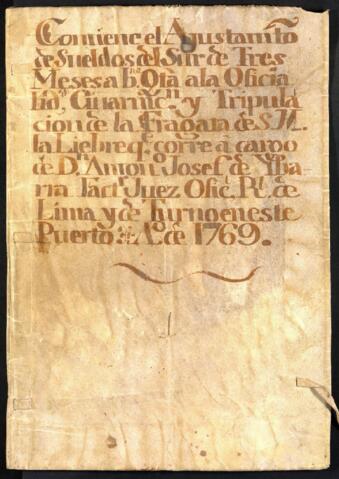 Contiene el Ajustamto
de Sueldos del Sur de Tres
Meses a bna Qta a la Oficia
lid, Guarnn y Tripula
cion de la Fragata de S.M.
la Liebre q. corre á cargo
de Dn Anton Josef de Yba
rra Fact Juez Ofic Rl de
Lima y de Turno en este
Puerto Ao de 1769.